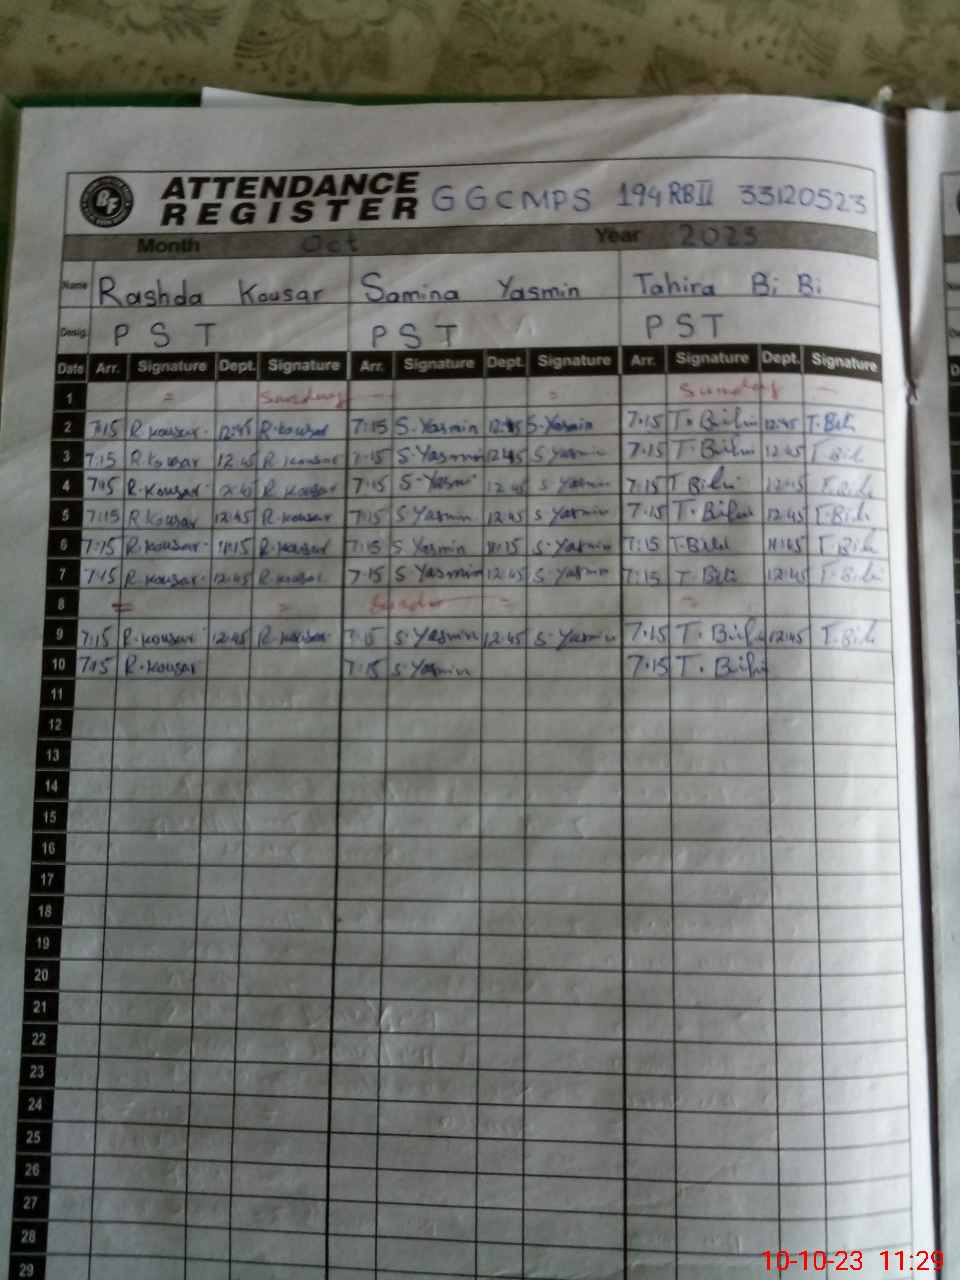 BF
ATTENDANCE REGISTER GGCMPS 194RBII 33120523
Month Oct Year 2023
Name Rashda Kousar Samina Yasmin Tahira Bi Bi
Desig. PST PST PST
Date Arr. Signature Dept. Signature Arr. Signature Dept. Signature Arr. Signature Dept. Signature
1 = Sunday — = Sunday —
2 7:15 R.kousar 12:45 R.kousar 7:15 S.Yasmin 12:45 S.Yasmin 7:15 T.Bibi 12:45 T.Bibi
3 7:15 R.Kousar 12:45 R.kousar 7:15 S.Yasmin 12:45 S Yasmin 7:15 T.Bibi 12:45 T.Bibi
4 7:15 R.Kousar 12:45 R.kousar 7:15 S.Yasmin 12:45 S Yasmin 7:15 T Bibi 12:45 T.Bibi
5 7:15 R Kousar 12:45 R.kousar 7:15 S Yasmin 12:45 S Yasmin 7:15 T.Bibi 12:45 T.Bibi
6 7:15 R.kousar 11:15 R.kousar 7:15 S Yasmin 11:15 S.Yasmin 7:15 T.Bibi T.Bibi
7 7:15 R.kousar 12:45 R.kousar 7:15 S Yasmin 12:45 S Yasmin 7:15 T Bibi 12:45 T.Bibi
8 = = Sunday = =
9 7:15 R.kousar 12:45 R.kousar 7:15 S.Yasmin 12:45 S Yasmin 7:15 T.Bibi 12:45 T.Bibi
10 7:15 R.kousar 7:15 S Yasmin 7:15 T.Bibi
11
12
13
14
15
16
17
18
19
20
21
22
23
24
25
26
27
28
29
10-10-23 11:29